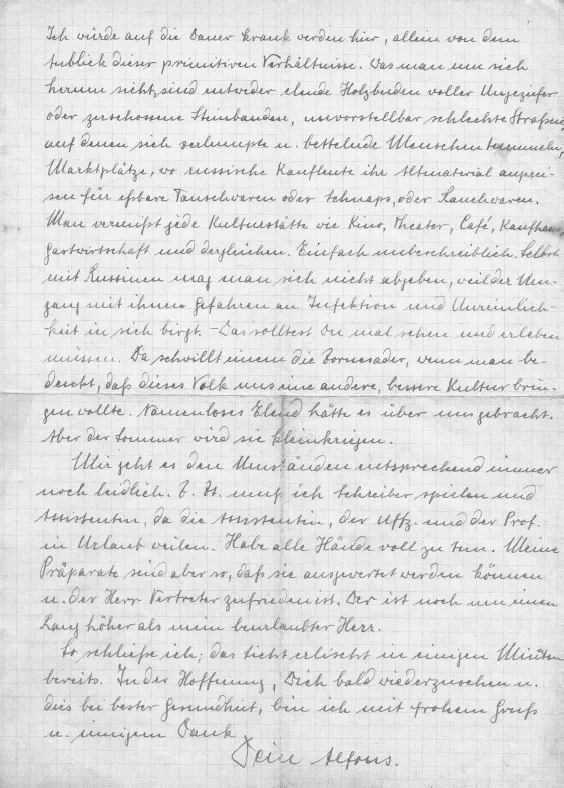 Ich würde auf die Dauer krank werden hier, allein von dem
Anblick dieser primitiven Verhältnisse. Was man um sich
herum sieht, sind entweder elende Holzbuden voller Ungeziefer
oder zerschossene Steinbauden, unvorstellbar schlechte Straßen,
auf denen sich zerlumpte u. bettelnde Menschen tummeln,
Marktplätze, wo russische Kaufleute ihr Altmaterial anprei-
sen für eßbare Tauschwaren oder Schnaps, oder Rauchwaren.
Man vermißt jede Kulturstätte wie Kino, Theater, Café, Kaufhaus
Gastwirtschaft und dergleichen. Einfach unbeschreiblich. Selbst
mit Russinen mag man sich nicht abgeben, weil der Um-
gang mit ihnen Gefahren an Infektion und Unreinlich-
keit in sich birgt. – Das solltest Du mal sehen und erleben
müssen. Da schwillt einem die Zornesader, wenn man be-
denkt, daß dieses Volk uns eine andere, bessere Kultur brin-
gen wollte. Namenloses Elend hätte es über uns gebracht.
Aber der Sommer wird sie kleinkriegen.
Mir geht es den Umständen entsprechend immer
noch leidlich. Z. Zt. muß ich Schreiber spielen und
Assistentin, da die Assistentin, der Uffz. und der Prof.
in Urlaub weilen. Habe alle Hände voll zu tun. Meine
Präparate sind aber so, daß sie ausgewertet werden können
u. der Herr Vertreter zufrieden ist. Der ist noch um einen
Rang höher als mein beurlaubter Herr.
So schließe ich; das Licht erlischt in einigen Minuten
bereits. In der Hoffnung, Dich bald wiederzusehen u.
dies bei bester Gesundheit, bin ich mit frohem Gruß
u. innigem Dank
Dein Alfons.